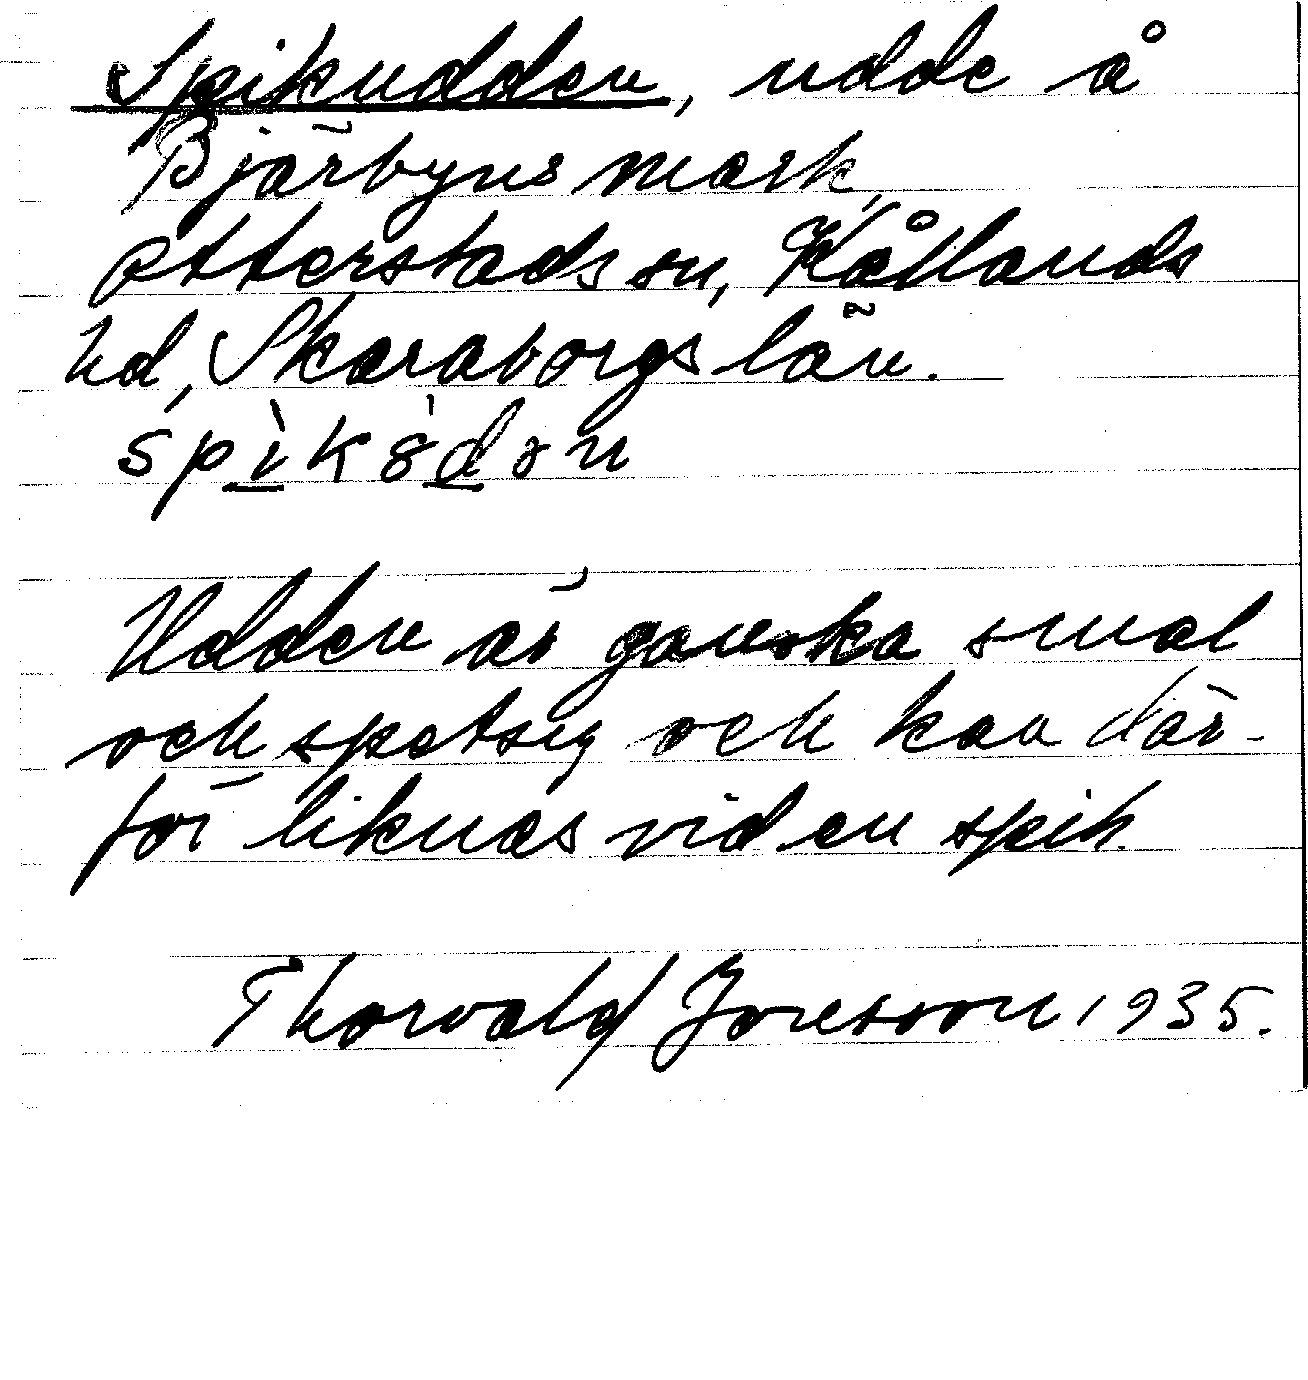 Spikudden, udde å
Bjärbyns mark,
Otterstads sn, Kållands
hd, Skaraborgs län.
Udden är ganska smal
och spetsig och kan där-
för liknas vid en spik.
Thorvald Jonsson 1935.